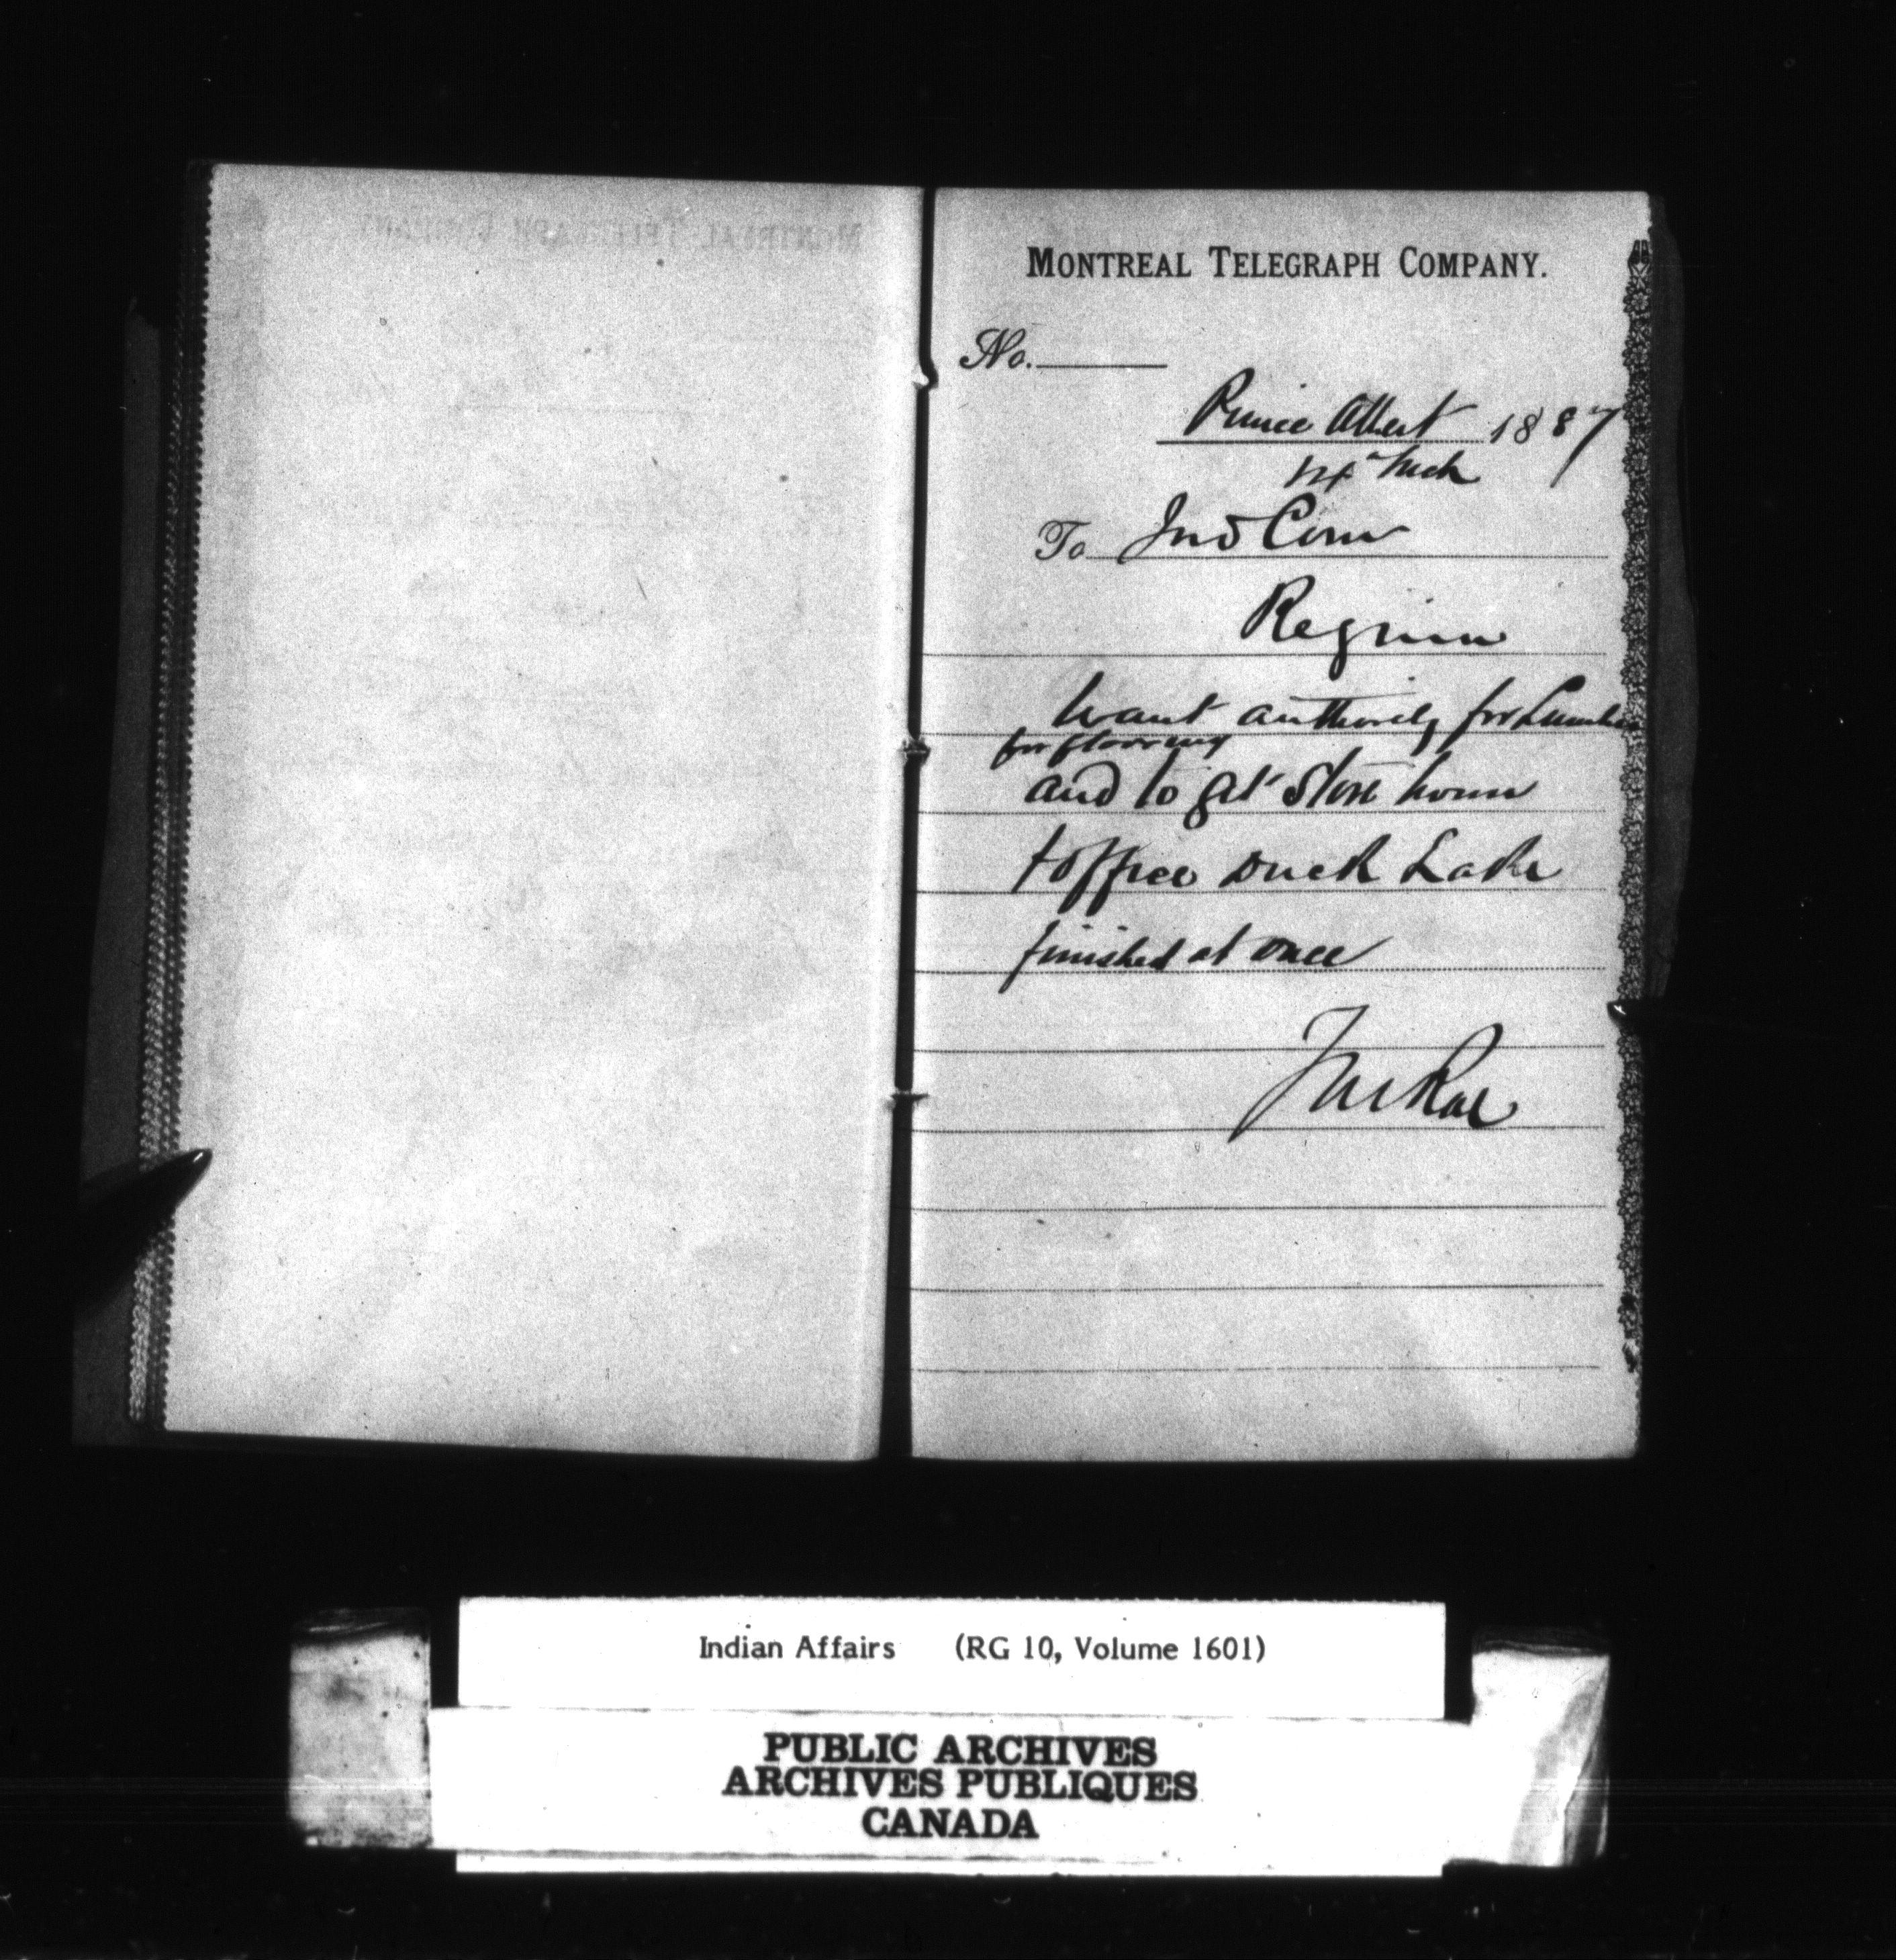 MONTREAL TELEGRAPH COMPANY.
No.
Prince Albert 1887
Mch
To Ind Com
Regina
Want authority for Lumber
for flooring
and to get Store house
+ office Duck Lake
finished at once
JM Rae
Indian Affairs (RG 10, Volume 1601)
PUBLIC ARCHIVES
ARCHIVES PUBLIQUES
CANADA